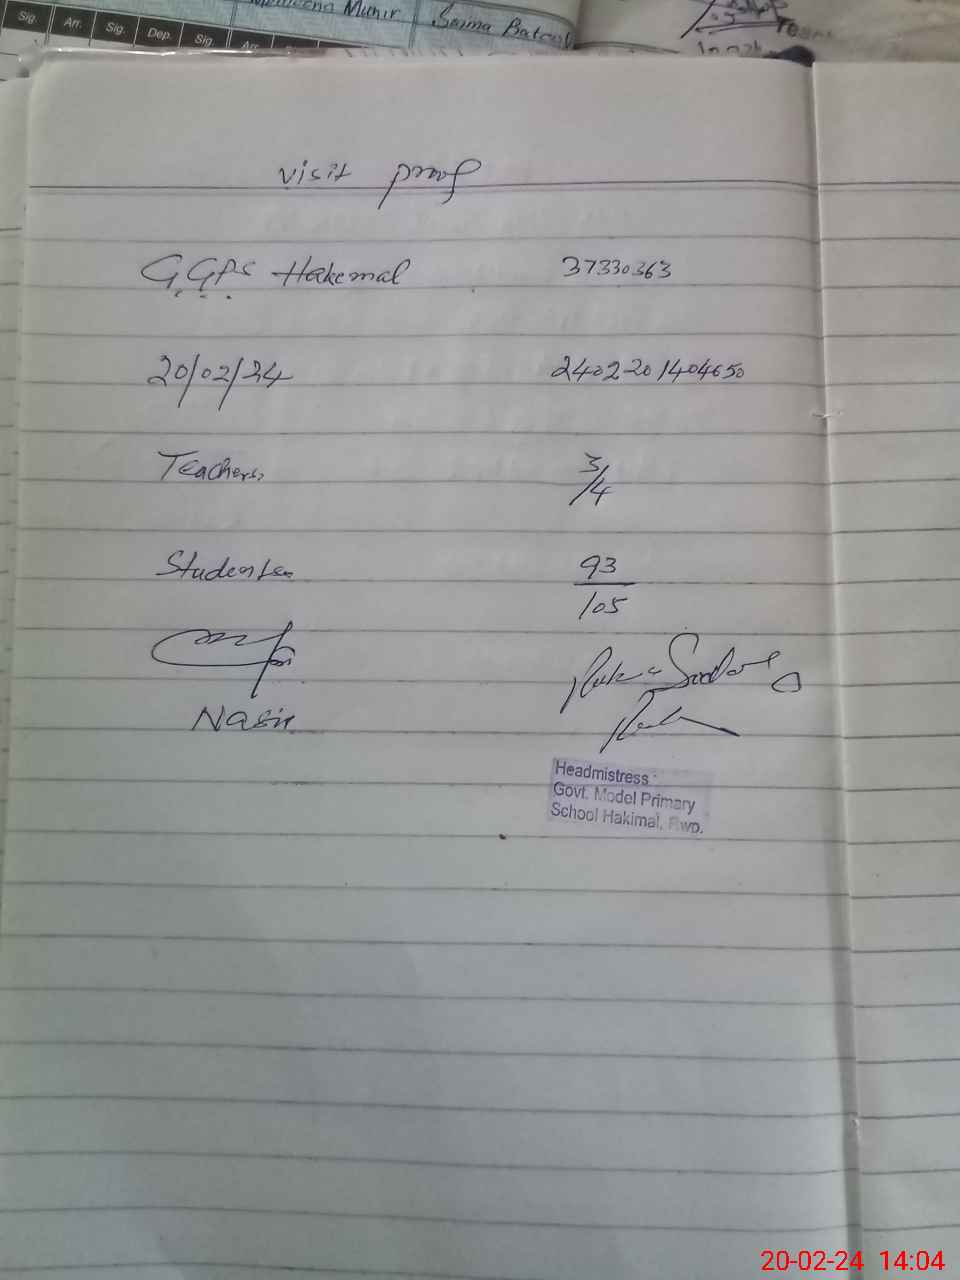 Sig.
Arr. Sig. Dep. Sig. Arr.
Munir
visit proof
G.G.P.S Hakemal 37330363
20/02/24 240220 1404650
Teachers 3/4
Students 93
105
Nasir
Headmistress
Govt. Model Primary
School Hakimal, Rwp.
20-02-24 14:04